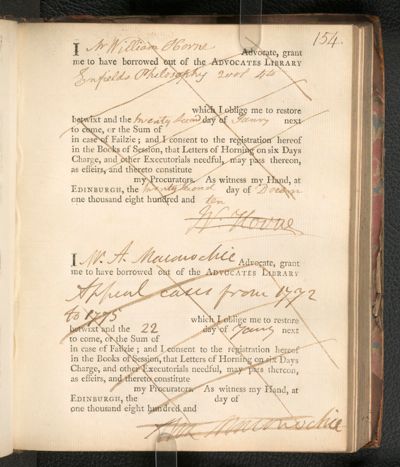 154.
I Mr William Horne Advocate, grant
me to have borrowed out of the ADVOCATES LIBRARY
Enfields Philosophy 2 vol 4to
which I oblige me to restore
betwixt and the twenty second day of Janry next
to come, or the Sum of
in case of Failzie; and I consent to the registration hereof
in the Books of Session, that Letters of Horning on six Days
Charge, and other Executorials needful, may pass thereon,
as effeirs, and thereto constitute
my Procurators. As witness my Hand, at
EDINBURGH, the twenty second day of Decem
one thousand eight hundred and ten
W Horne
I Mr A. Maconochie Advocate, grant
me to have borrowed out of the ADVOCATES LIBRARY
Appeal cases from 1772
to 1775
which I oblige me to restore
betwixt and the 22 day of Janry next
to come, or the Sum of
in case of Failzie; and I consent to the registration hereof
in the Books of Session, that Letters of Horning on six Days
Charge, and other Executorials needful, may pass thereon,
as effeirs, and thereto constitute
my Procurators. As witness my Hand, at
EDINBURGH, the day of
one thousand eight hundred and
Maconochie